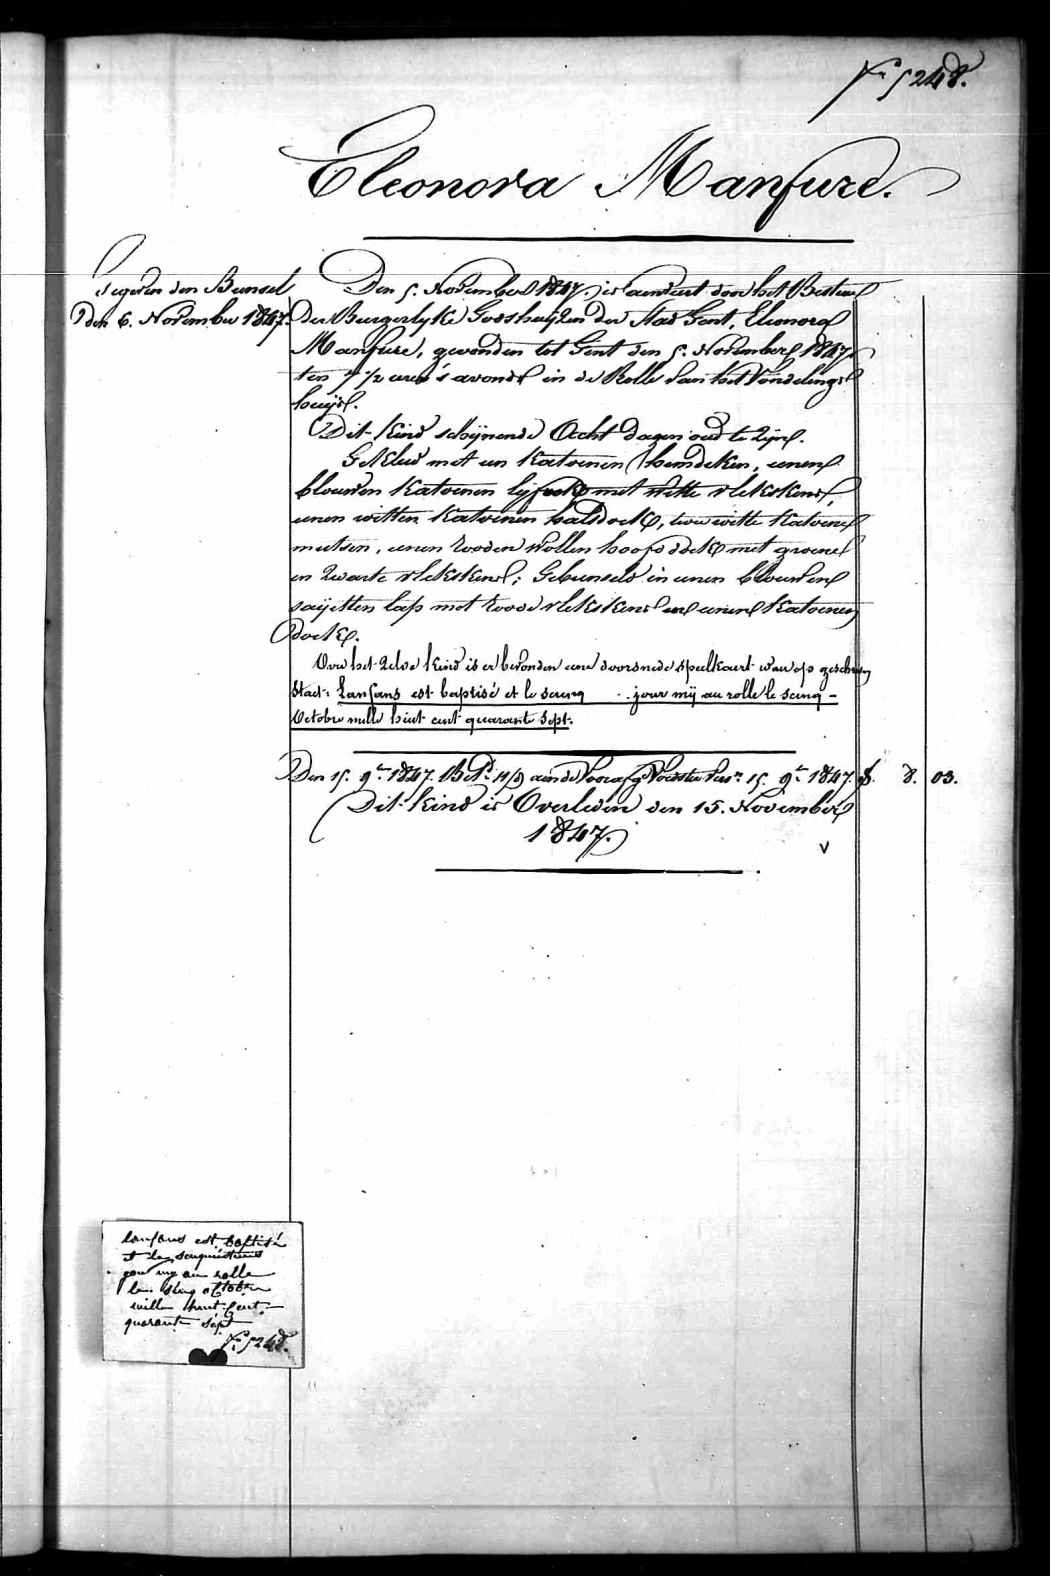 Fo 5248.
Eleonora Manfure.
Gegeven den Bunsel
den 6. November 1847.
Den 5. November 1847. is aenveert door het Bestuer
der Burgerlyke Godshuyzen der Stad Gent, Eleonora
Manfure, gevonden tot Gent den 5. November 1847
ten 7 1/2 uren s'avonds in de Rolle van het Vondelings
huijs.
Dit kind schijnende Acht dagen oud te zijn.
Gekleed met een katoenen hemdeken, eenen
blouwen katoenen lijfrok met witte vlekskens,
eenen witten katoenen halsdoek, twee witte katoene
mutsen, eenen rooden wollen hoofddoek met groene
en zwarte vlekskens; Gebunseld in eenen blouwen
saijetten lap met roode vlekskens en eenen katoenen
doek.
Over het zelve kind is er bevonden eene doorsnede speelkaert waer op geschreven
staet: Lanfans est baptisé et le seunq .. jour mij au rolle le seunq -
Octobre mille huit cent quarante sept.
Den 15. 9br 1847. Bet. aen de Voorster 15. 9br 1847. f. 8. 03.
Dit kind is Overleden den 15. November
1847.
V
lanfans est baptisé
et le
jour my au rolle
le senq octobre
mille huit Cent
quarante sept
Fo 5248.